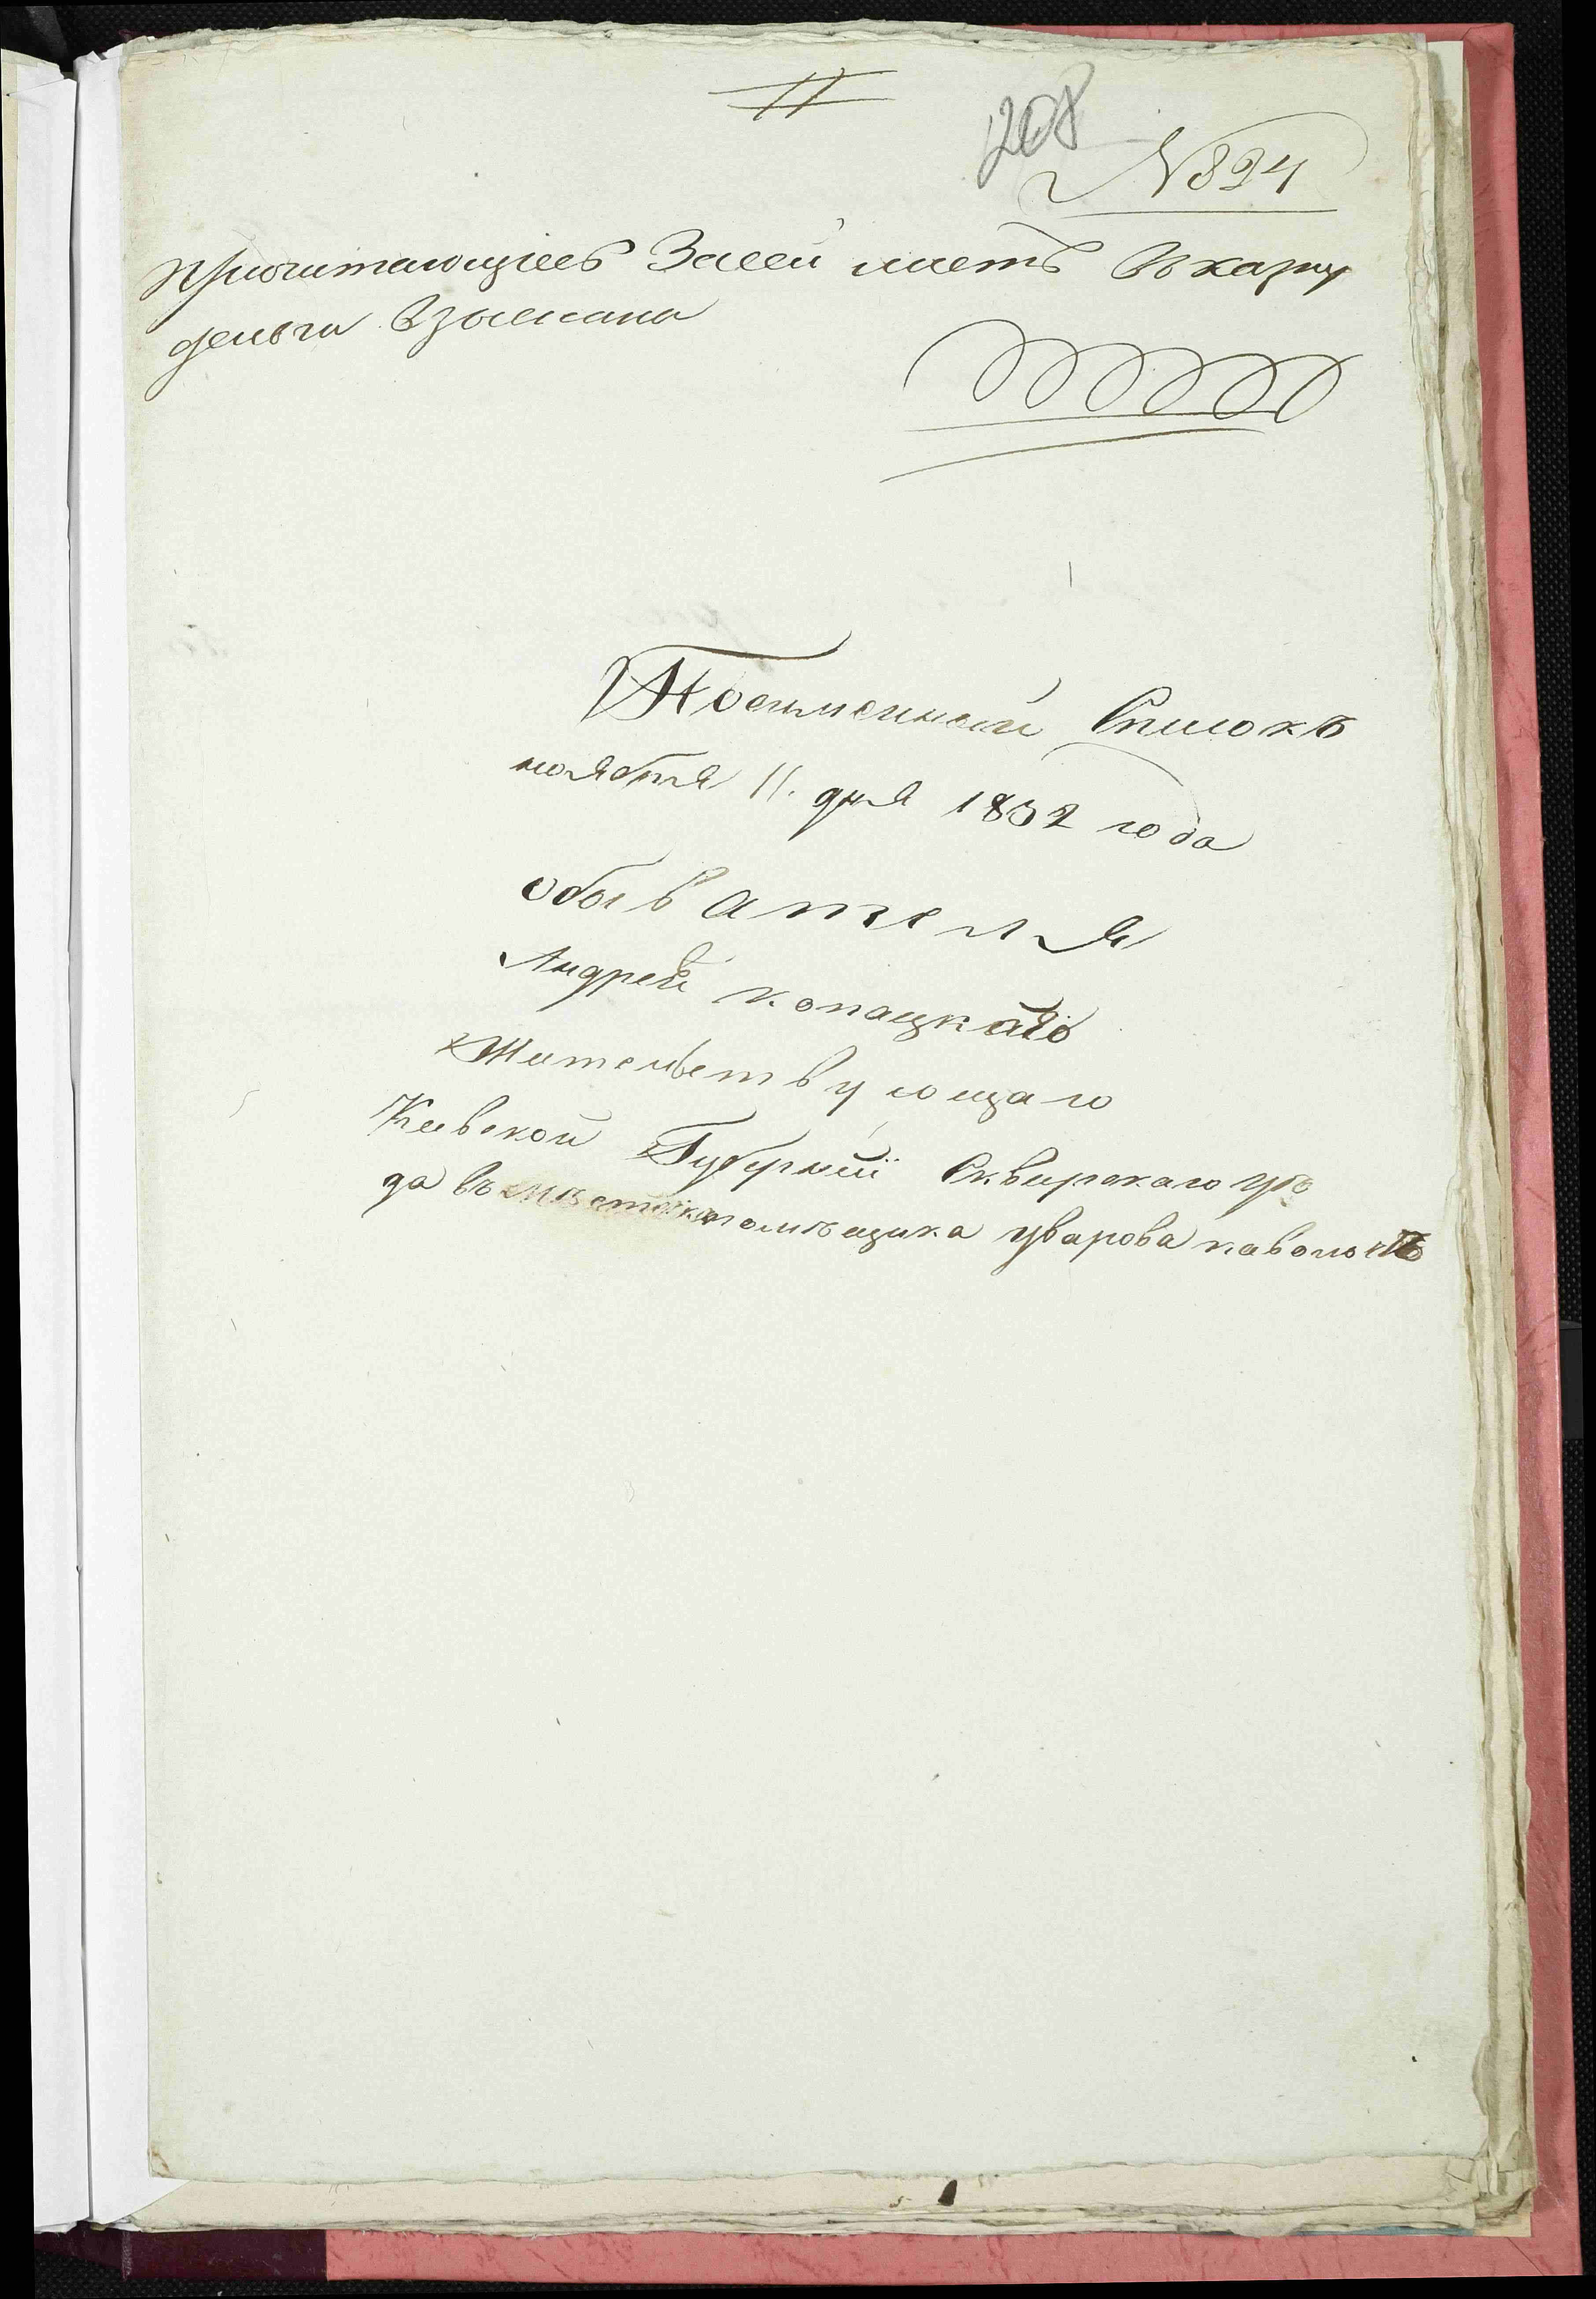 208
№ 894
причитающiеся За сей листъ Въ казну
деньги взысканы
Поемменный Списокъ
ноября 11. дня 1832 года
обывателя
Андрей копацкаго
Жительствующаго
Киевской Губернiи Сквирскаго уѣз
да въ местечк помѣщика уварова паволочѣ